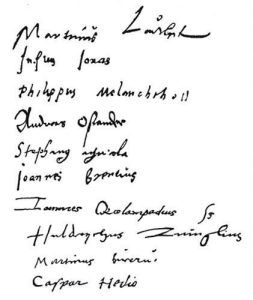 Martinus Luther
Justus Jonas
Philippus Melanchtho
Andreas Osiander
Stephanus agricola
Joannes Brentius
Ioannes Oecolampadius
Huldrychus Zuinglius
Martinus bucerus
Caspar Hedio